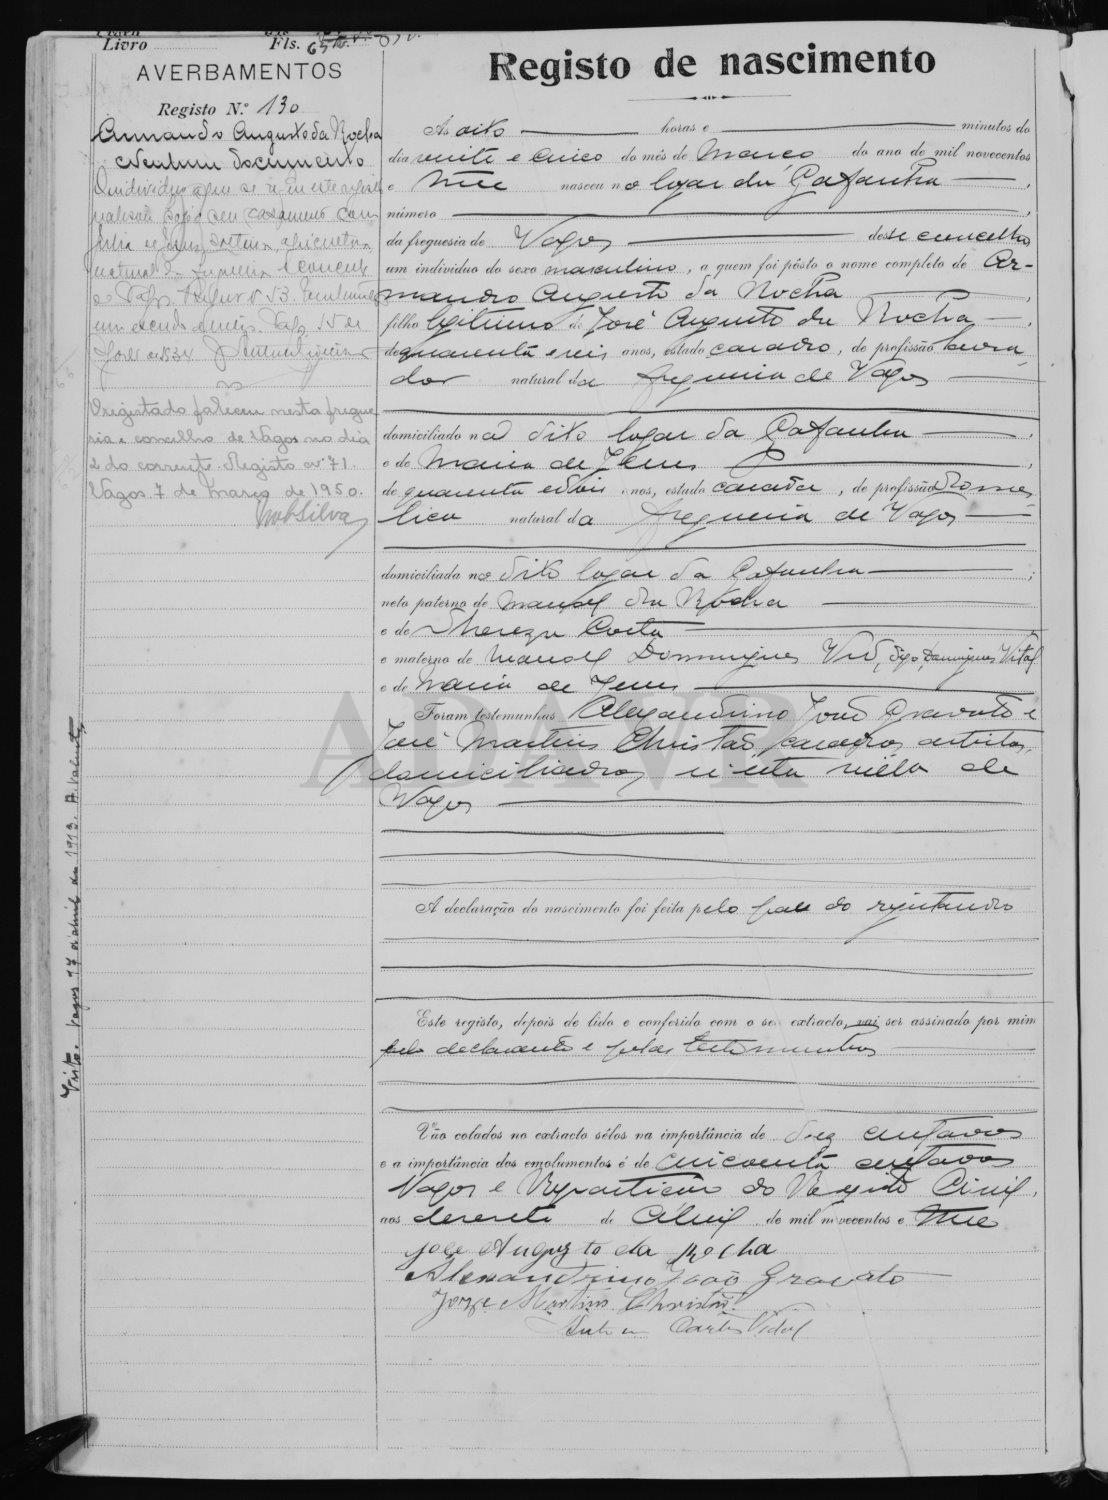 Livro Fls. 65v.
AVERBAMENTOS
Registo N.º 130
Armando Augusto da Rocha
Nenhum documento
O individuo a que se refere este registo
realisou hoje seu casamento com
Julia de Jesus, solteira,
natural da freguesia e concelho
de Vagos. Registo n.º 53. Emolumentos
um escudo e meio. Vagos 15 de
de 1934
O registado faleceu nesta fregue
sia e concelho de Vagos no dia
2 do corrente. Registo nº 71.
Vagos. 7 de Março de 1950.
Silva
Visto. Vagos 17 de abril de 1913.
Registo de nascimento
Ás oito horas e minutos do
dia vinte e cinco do mês de Março do ano de mil novecentos
e nasceu no logar da Gafanha ,
número ,
da freguesia de Vagos deste concelho
um individuo do sexo masculino, a quem foi pôsto o nome completo de Ar-
mando Augusto da Rocha ,
filho legitimo de José Augusto da Rocha ,
de quarenta e seis anos, estado casado, de profissão lavra-
dor natural da freguesia de Vagos
domiciliado no dito logar da Gafanha ,
e de Maria de Jesus ,
de quarenta e dois anos, estado casada, de profissão domes-
tica natural da freguesia de Vagos
domiciliada no dito logar da Gafanha ;
neto paterno de Manoel da Rocha
e de Thereza Costa
e materno de Manoel Domingues digo, Domingues Vital
e de Maria de Jesus
Foram testemunhas Alexandrino João Gravato e
José Martins Christão, casados, artistas,
domiciliados n'esta villa de
Vagos
A declaração do nascimento foi feita pelo pae do registando
Este registo, depois de lido e conferido com o seu extracto, vai ser assinado por mim
pelo declarante e pelas testemunhas
Vão colados no extracto sêlos na importância de dez centavos
e a importância dos emolumentos é de cincoenta centavos
Vagos e Repartição do Registo Civil,
aos desesete de Abril de mil novecentos e
José Augusto da Rocha
Alexandrino João Gravato
Jorge Martins Christão
Carlos Vidal
ADAVR